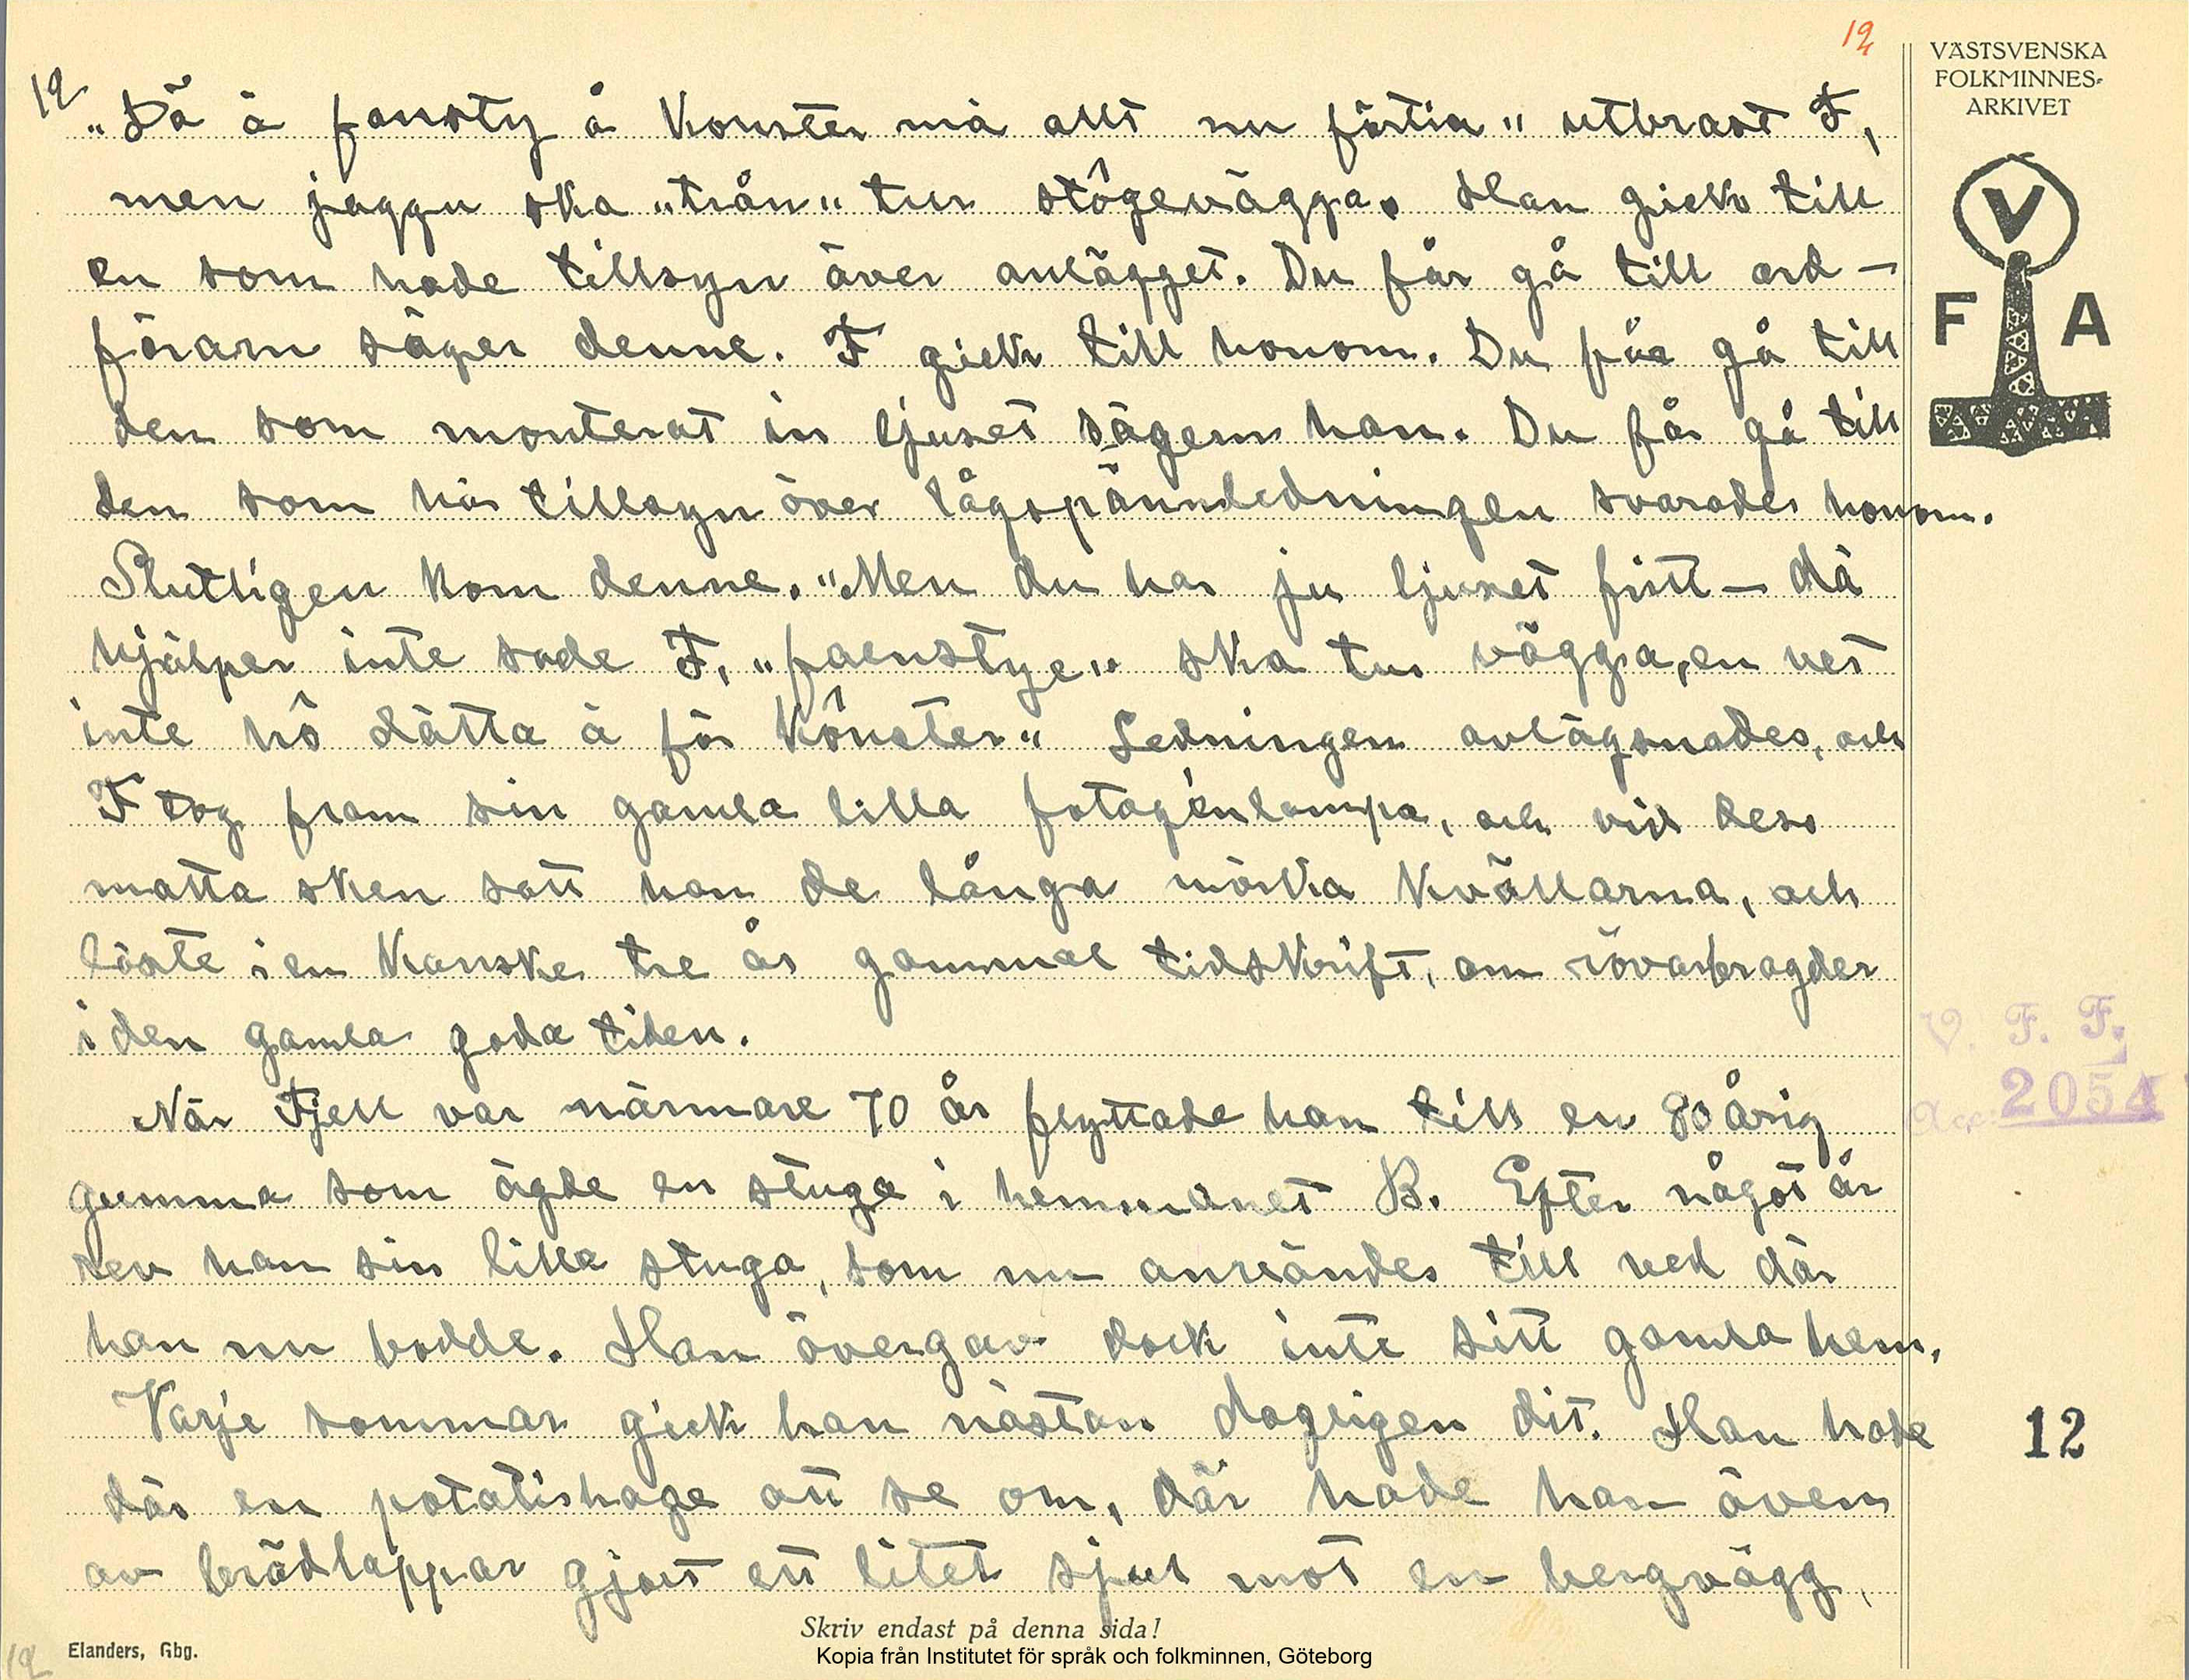 12
VÄSTSVENSKA
FOLKMINNES-
ARKIVET
V
F A
12
"Dä ä fansty å konster må allt nu förtin" utbrast F,
men jaggu ska "trån" tur stôgevägga. Han gick till
en som hade tillsyn över anlägget. Du får gå till ord-
förarn säger denne. F gick till honom. Du får gå till
den som monterat in ljuset sägern han. Du får gå till
den som har tillsyn över lågspännledningen svarades honom.
Slutligen kom denne. "Men du har ju ljuset fritt – dä
hjälper inte sade F, "faenstye" ska tur vägga, en vet
inte hô dätta ä för kônster" Ledningen avlägsnades, och
F tog fram sin gamla lilla fotogénlampa, och vid dess
matta sken satt han de långa mörka kvällarna, och
läste i en kanske tre år gammal tidskrift, om rövarbragder
i den gamla goda tiden.
När Fjell var närmare 70 år flyttade han till en 80 årig
gumma som ägde en stuga i hemmanet B. Efter något år
rev han sin lilla stuga, som nu användes till ved där
han nu bodde. Han övergav dock inte sitt gamla hem.
Varje sommar gick han nästan dagligen dit. Han hade
där en potatishage att se om, där hade han även
av brädlappar gjort ett litet sjul mot en bergvägg,
V. F. F.
Acc. 2054
12
Skriv endast på denna sida!
Elanders, Gbg.
Kopia från Institutet för språk och folkminnen, Göteborg
12